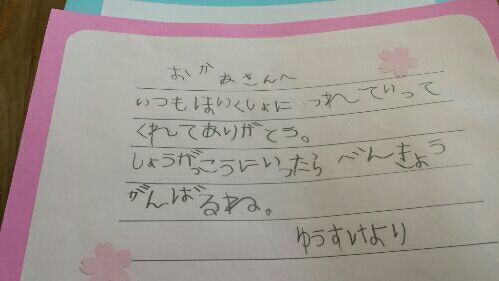 おかあさんへ
いつもほいくしょに つれていって
くれてありがとう。
しょうがっこうにいったら べんきょう
がんばるね。
ゆうすけより